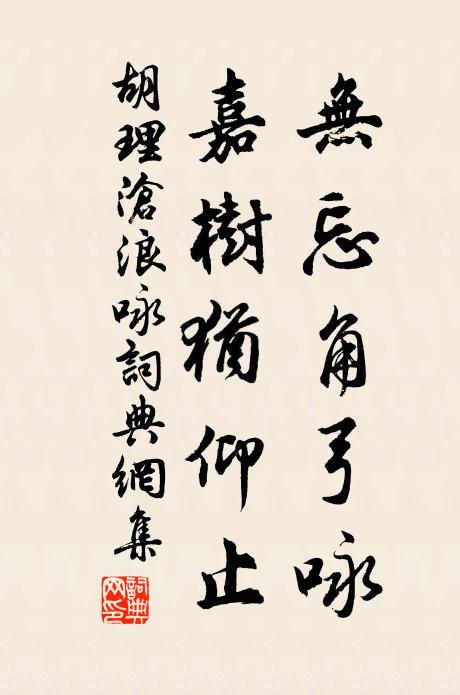 無忘角弓咏
嘉樹猶仰止
胡理滄浪咏詞典網集
詞典
网印